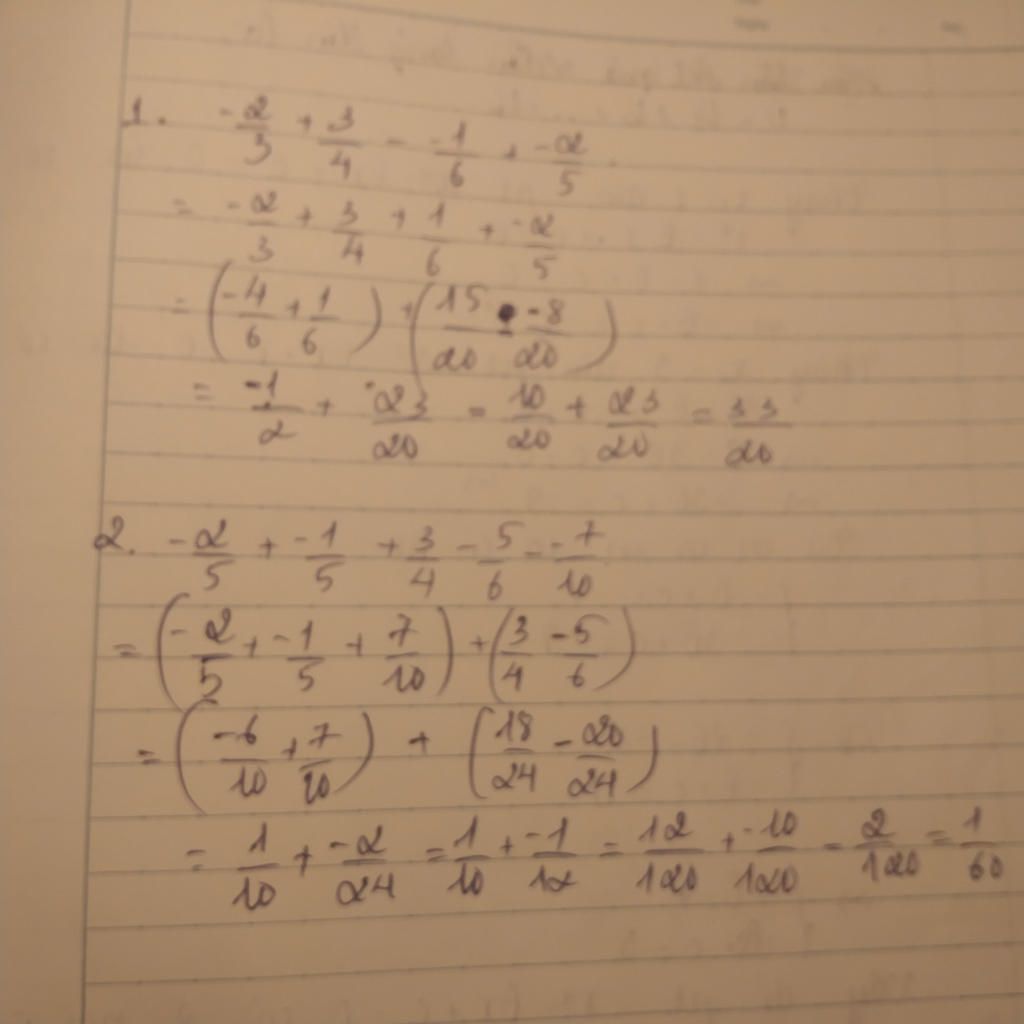 1. -2/3 + 3/4 - -1/6 + -2/5
= -2/3 + 3/4 + 1/6 + -2/5
= (-4/6 + 1/6) + (15/20 - -8/20)
= -1/2 + 23/20 = 10/20 + 23/20 = 33/20
2. -2/5 + -1/5 + 3/4 - 5/6 - -7/10
= (-2/5 + -1/5 + 7/10) + (3/4 - 5/6)
= (-6/10 + 7/10) + (18/24 - 20/24)
= 1/10 + -2/24 = 1/10 + -1/12 = 12/120 + -10/120 = 2/120 = 1/60